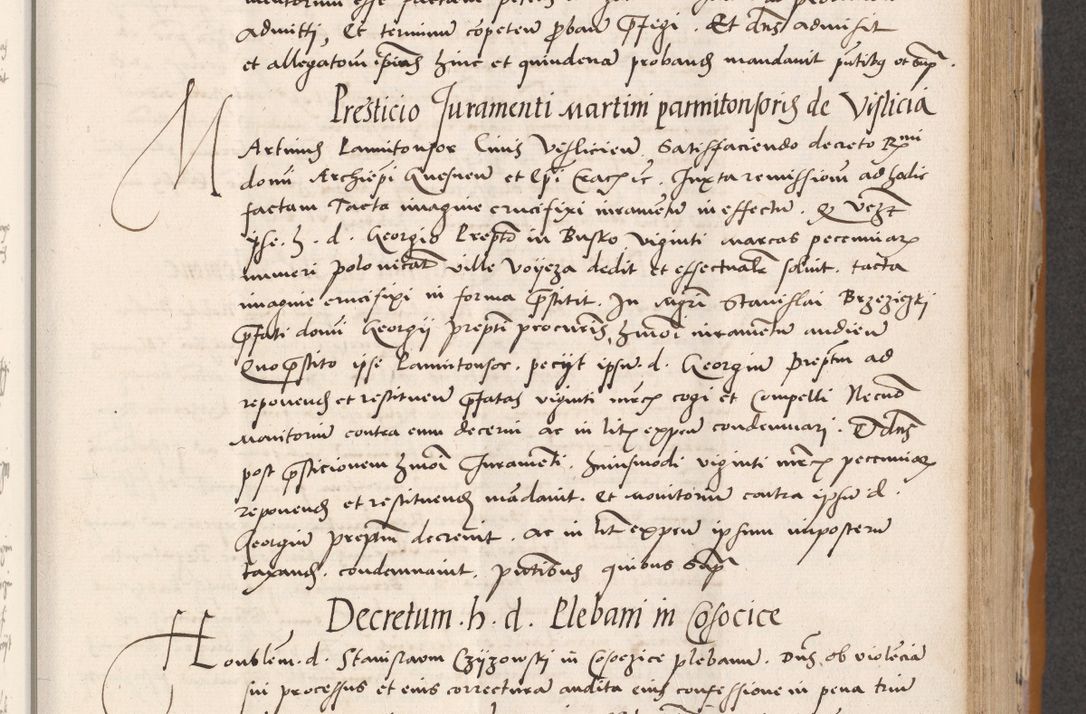 admitti, Et terminum competen proban prefigi. Et dns admisit
et allegatorum hinc et quindena proband mandavit pntibus et supra.
Presticio Juramenti Martini pannitonsoris de Vislicia
Martinus Pannitonsor Civis Vislicien. Satisfaciendo decreto Rmi
domi Archiepi Gnesnen et Epi Crac ic. Juxta remissionem ad hodie
factam Tacta imagine crucifixi iuramentum in effectum. Q
ipse. h. d. Georgio Prepto in Busko viginti marcas pecuniar
numeri polonicat ville dedit et effectualr soluit. tacta
imagine crucifixi in forma prestitit. In Stanislai Brzeziczki
prefati domi Georgii prepti procuris, hmoi iuramentum audien
Quo prestito ipse Pannitonsor. peciit ipsum. d. Georgium Preptm ad
reponend et restituen prefatas viginti mrcs cogi et compelli Necno
Monitorium contra eum decerni ac in litis expen condemnari. Et dns
post presticionem hmoi Juramenti. huiusmodi viginti mrcs pecuniar
reponend et restituend mandavit. Et monitorium contra ipsum d.
Georgium preptum decrevit. ac in lit expen ipsum imposterum
taxand. condemnavit. pntibus quibus supra
Decretum. h. d. Plebani in Cosocice
Honoblem. d. Stanislaum Czyzowski in Cosocice plebanum. Dns ob violencia
sui processus et eius correctura audita eius confessione in pena trium